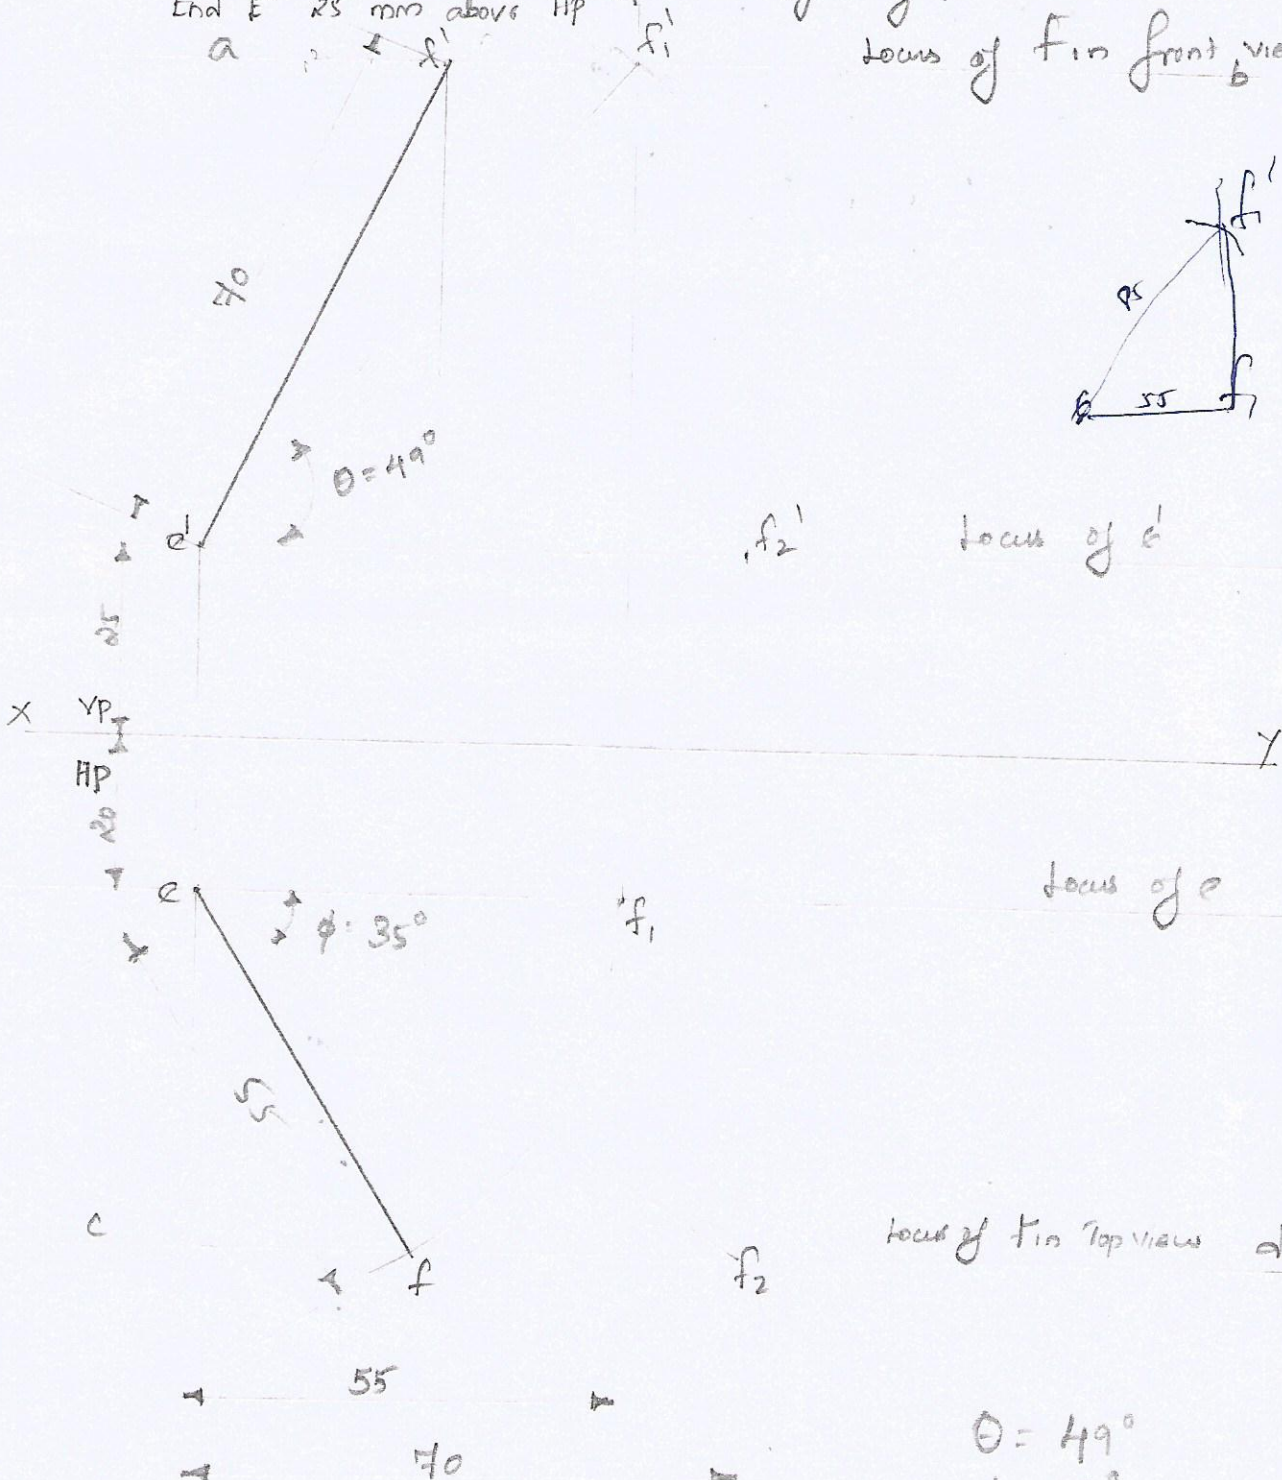 End E 25 mm above HP
a
f'
f1'
Locus of F in front
b
70
f1'
85
55
f1
θ = 49°
e'
f2'
Locus of e'
25
X
VP
Y
HP
20
e
φ = 35°
f1
Locus of e
55
c
f
f2
Locus of F in Top view
d
55
70
θ = 49°